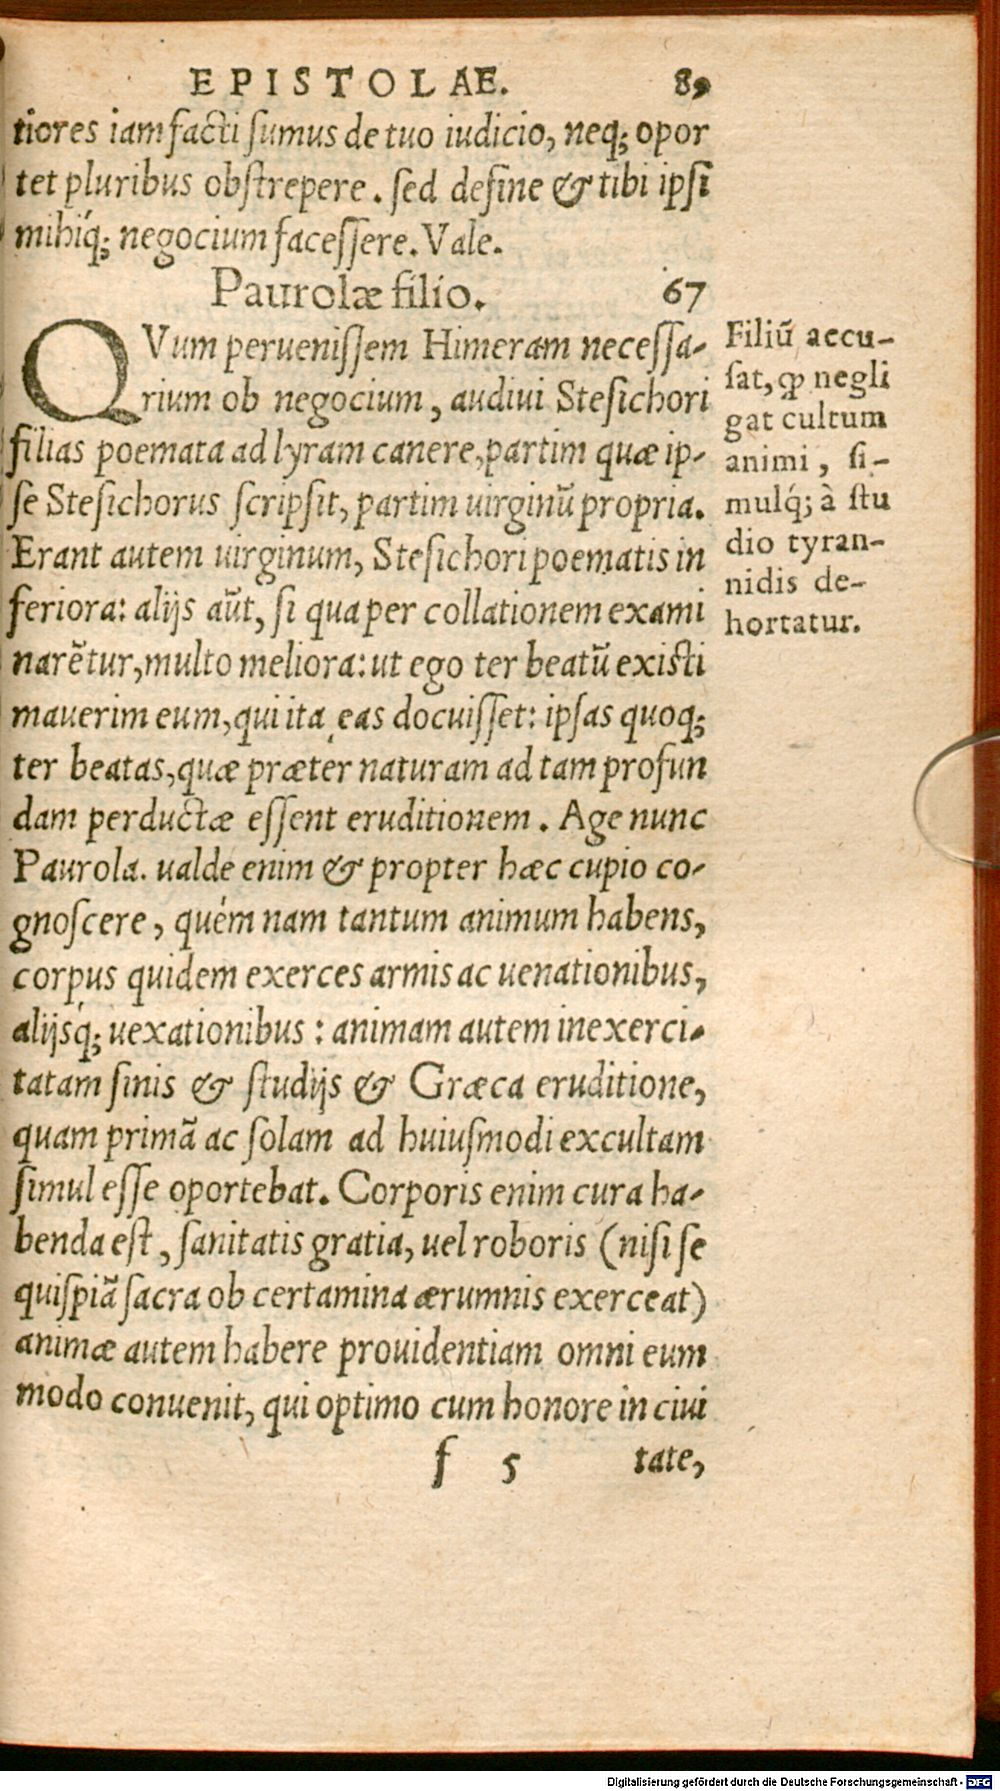 EPISTOLAE. 89
tiores iam facti ſumus de tuo iudicio, neq; opor
tet pluribus obſtrepere. ſed deſine & tibi ipſi
mihiq́; negocium faceſſere. Vale.
Paurolæ filio. 67
QVum perueniſſem Himeram neceſſa-
rium ob negocium, audiui Steſichori
filias poemata ad lyram canere, partim quæ ip-
ſe Steſichorus ſcripſit, partim uirginũ propria.
Erant autem uirginum, Steſichori poematis in
feriora: alijs aũt, ſi qua per collationem exami
narẽtur, multo meliora: ut ego ter beatũ exiſti
mauerim eum, qui ita eas docuiſſet: ipſas quoq;
ter beatas, quæ præter naturam ad tam profun
dam perductæ eſſent eruditionem. Age nunc
Paurola. ualde enim & propter hæc cupio co-
gnoſcere, quém nam tantum animum habens,
corpus quidem exerces armis ac uenationibus,
alijsq́; uexationibus: animam autem inexerci-
tatam ſinis & ſtudijs & Græca eruditione,
quam primã ac ſolam ad huiuſmodi excultam
ſimul eſſe oportebat. Corporis enim cura ha-
benda eſt, ſanitatis gratia, uel roboris (niſi ſe
quiſpiã ſacra ob certamina ærumnis exerceat)
animæ autem habere prouidentiam omni eum
modo conuenit, qui optimo cum honore in ciui
f 5 tate,
Filiũ accu-
ſat, ꝙ negli
gat cultum
animi, ſi-
mulq́; à ſtu
dio tyran-
nidis de-
hortatur.
Digitalisierung gefördert durch die Deutsche Forschungsgemeinschaft - DFG